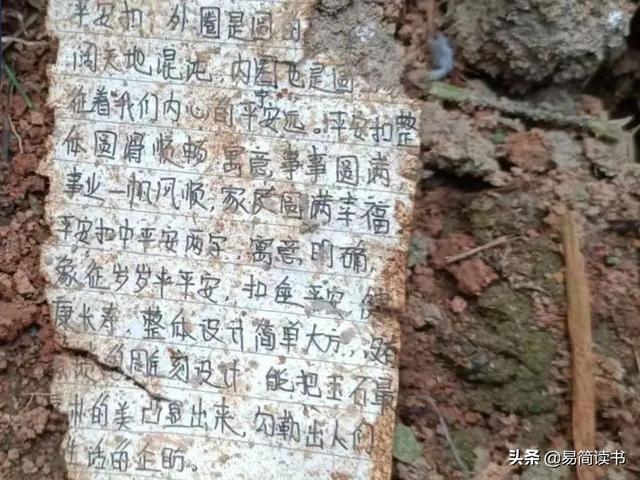 平安扣 外圈是圆
阔天地混沌,内圈也是圆
征着我们内心的平安远。平安扣整
体圆滑顺畅 寓意,事事圆满
事业一帆风顺,家庭圆满幸福.
平安扣中平安两字,寓意明确,
象征岁岁平平安,扣住平安 健
康长寿 整体设计简单大方,没
雕刻设计 能把玉石最
的美凸显出来,勾勒出人们
生活的企盼。
头条 @易简读书